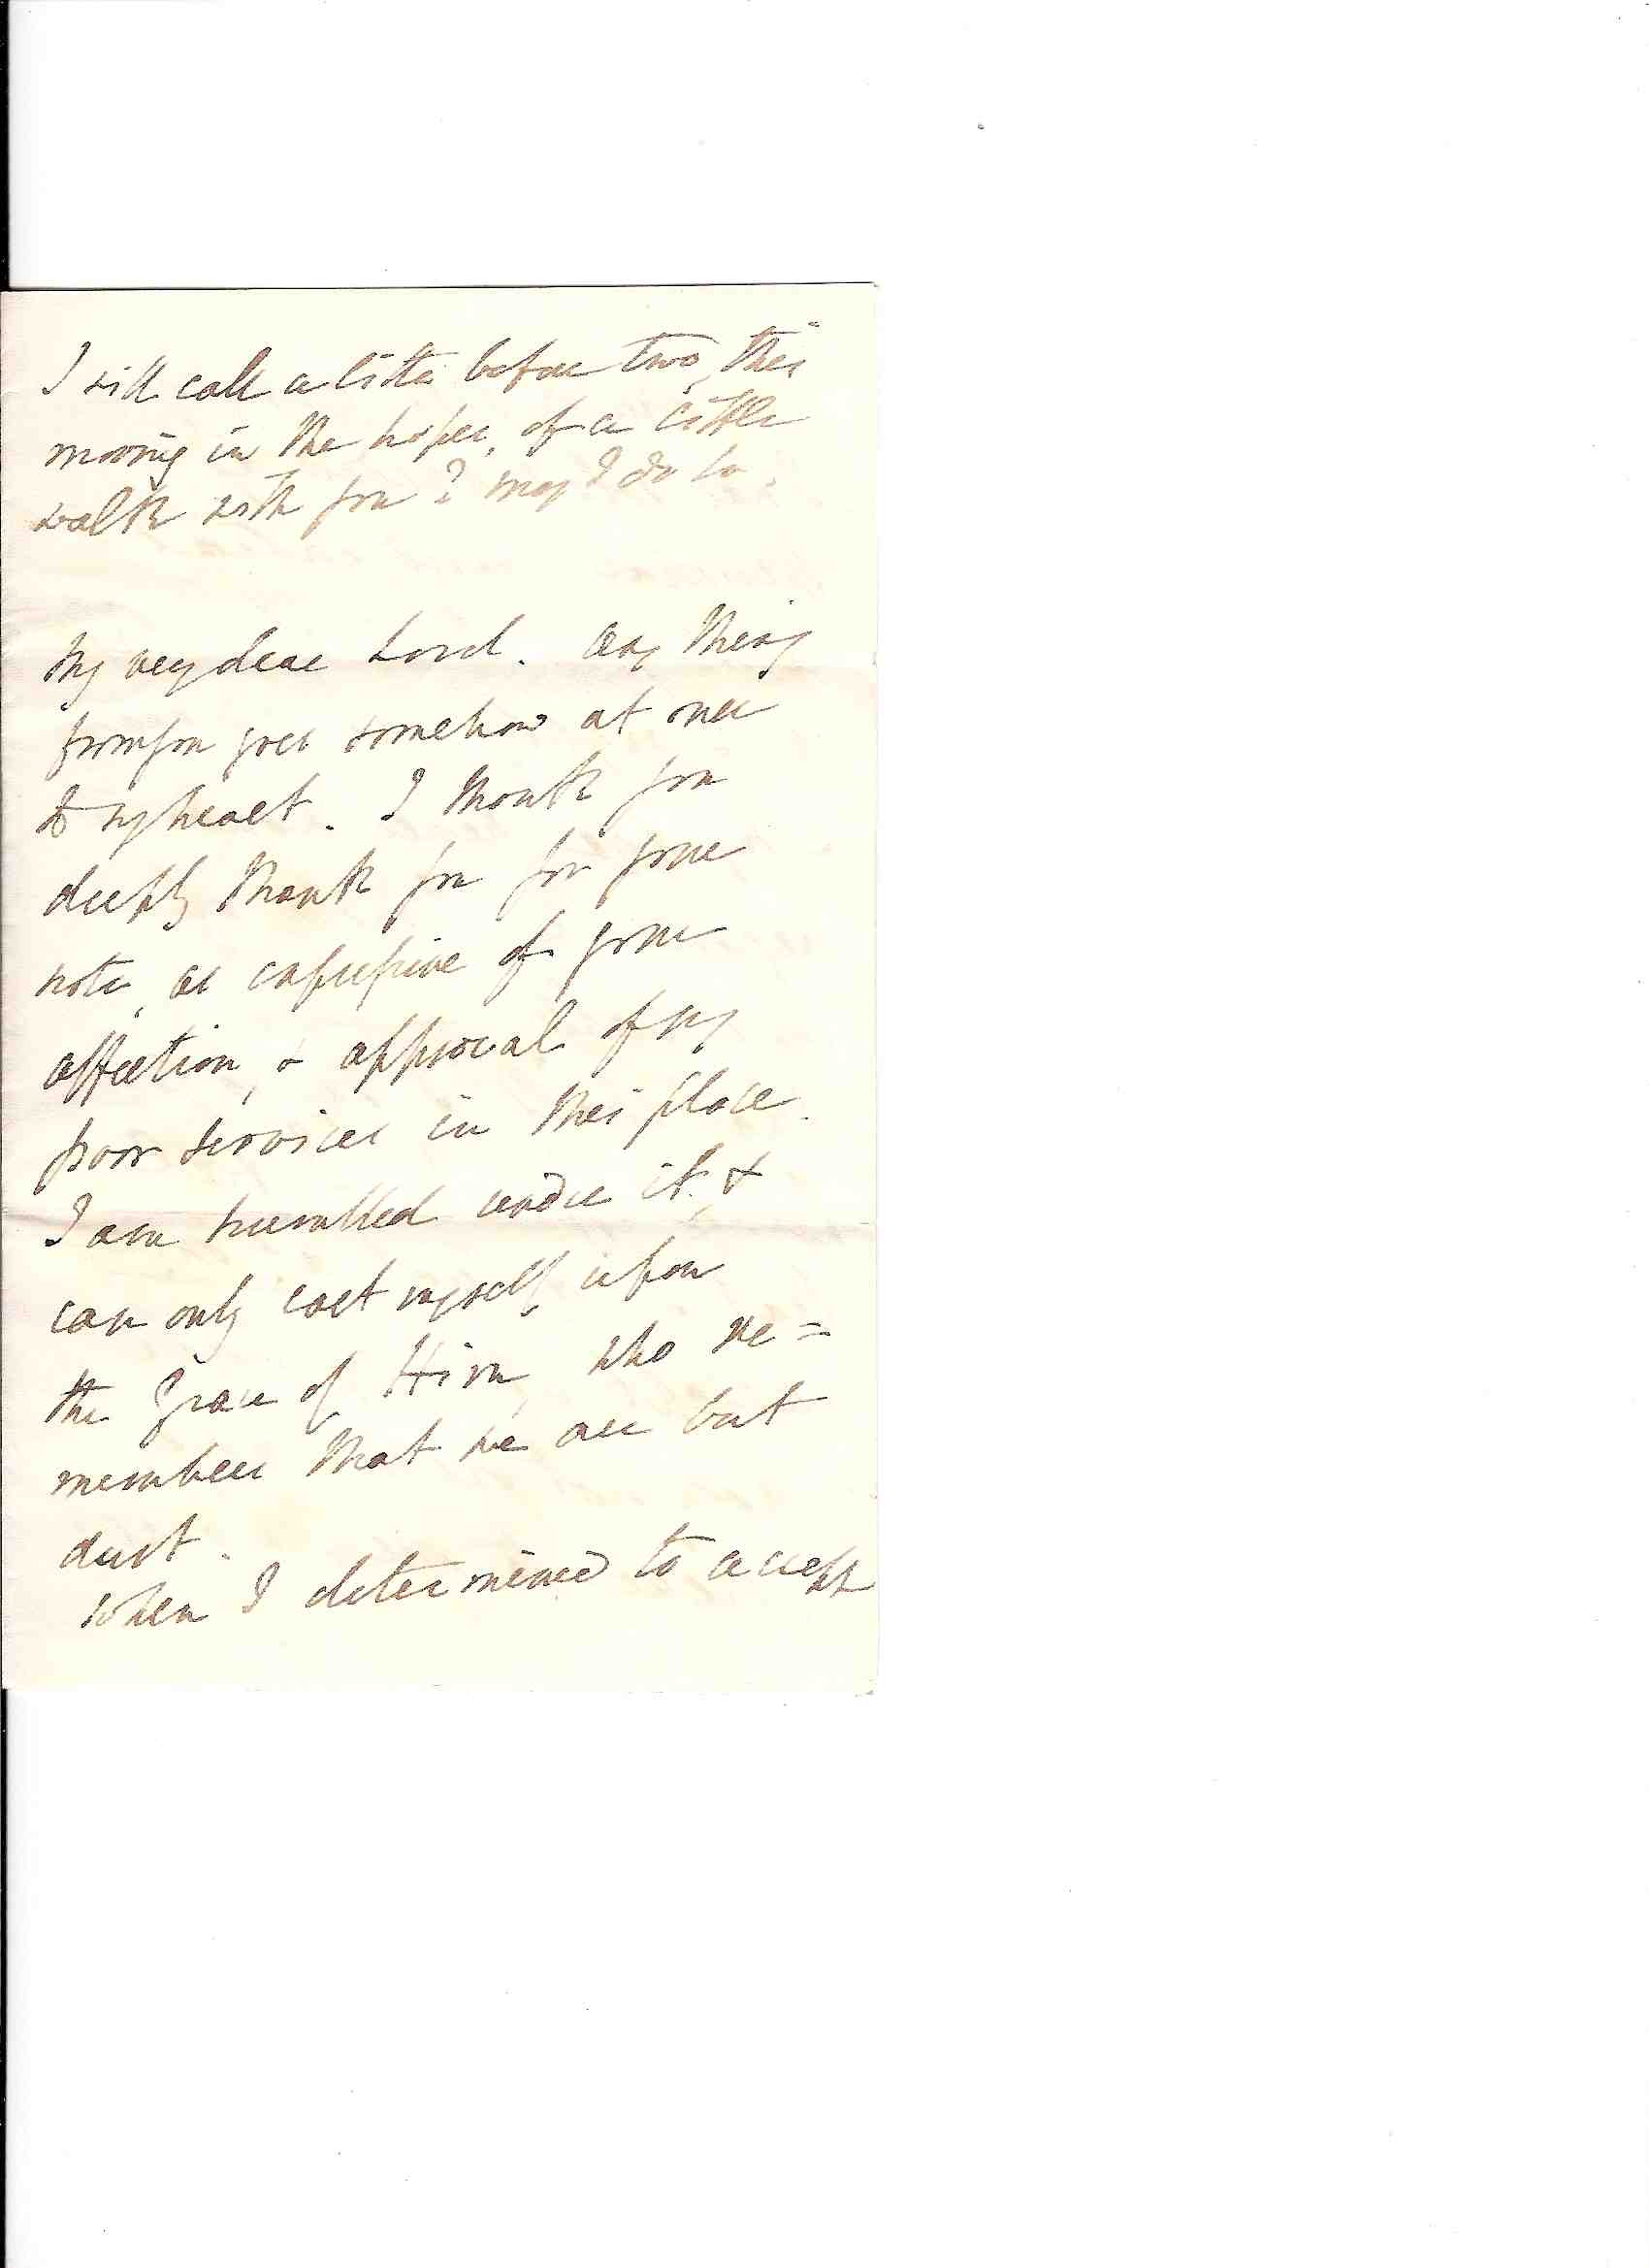 I will call a little before two, this
morning in the hopes, of a little
walk with you? may I do so.
My very dear Lord. Any thing
from you goes somehow at once
to my heart. I thank you
deeply thank you for your
note, as expressive of your
affection, & approval of my
poor services in this place.
I am humbled under it, &
can only cast myself, upon
the Grace of Him, who re=
members that we are but
dust.
When I determined to accept